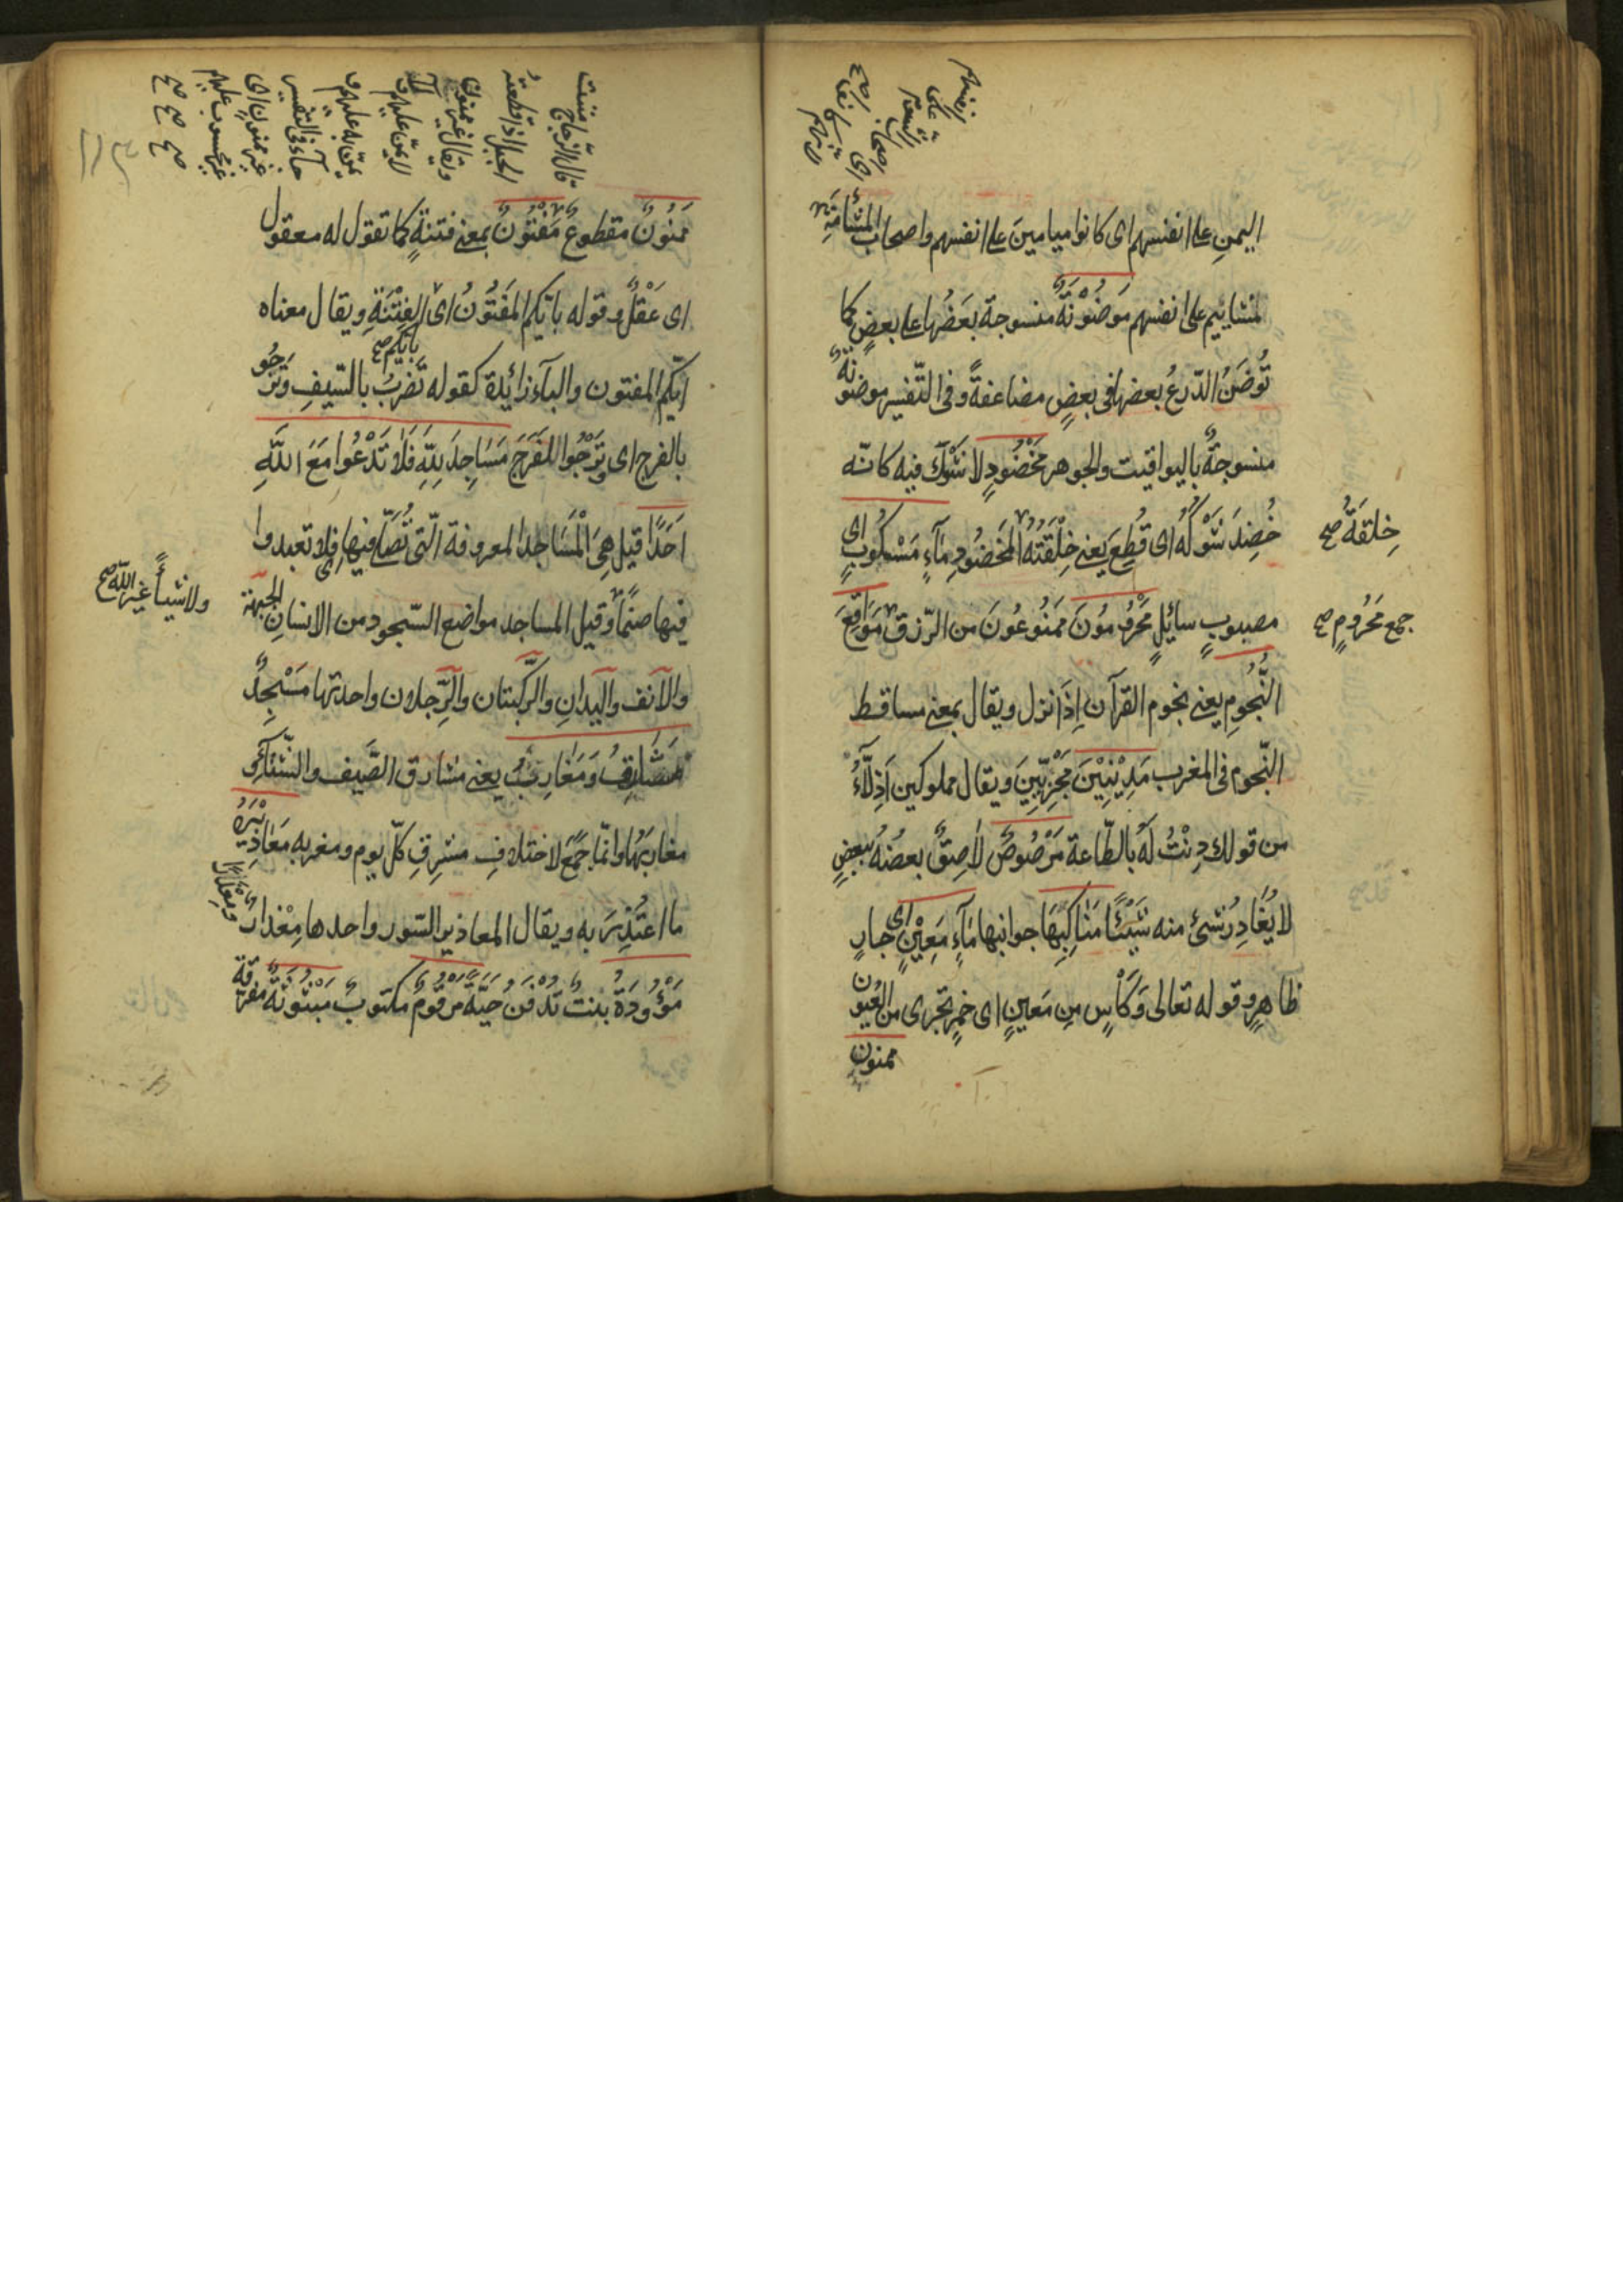 اليمنِ على انفسهم اى كانوا ميامينَ على انفسهم واصحاب المشأمَةِ
لمشائيم على انفسهم مَوضُوْنَةٌ منسوجة بَعضُها على بعضٍ كما
تُوضَنُ الدّرعُ بعضها فى بعضٍ مضاعفةً وفى التّفسير موضونةٌ
منسوجةٌ باليواقيت والجوهر مَخْضُودٍ لا شَوْكَ فيه كانّه
خُضِدَ شَوْكُهُ اى قُطِعَ يعنى خِلْقَتُهُ المَخضُودِ مَآءٍ مَسْكُوبٍ اى
خِلقَةُ صح
مصبوبٍ سائِلٍ مَحْرُومُونَ مَمنُوعُونَ من الرّزق مَوَاقِعَ
جمع مَحرُومٍ صح
النُّجُومِ يعنى نجوم القرآن اِذَا نزل ويقال بمعنى مساقط
النّجوم فى المغرب مَدِيْنِيْنَ مَجْزِيّيِنَ ويقال مملوكين اَذِلَّآءُ
من قولك دِنْتُ لَهُ بالطّاعة مَرْصُوصٌ لاصِقٌ بعضُهُ ببعضٍ
لا يُغَادِرُ شىءٌ منه شَيْئًا مَنَاكِبِهَا جوانبها مَآءٍ مَعِيْنٍ اى جارٍ
ظاهرٍ وقوله تعالى وَكَأْسٍ مِن مَعينٍ اى خمرٍ تجرى من العُيُون
ممنون
مننت
قال الزّجاج
الحبل اذا قطعتُه
ويقال غير ممنون
لا يمنّ عليهم
يمنّ به عليهم
جآء فى التفسير
غير ممنون اى
غير محسوب عليهم
صح صح صح
مَمنُونٌ مقطوعٌ مَفْتُونٌ بمعنى فتنةٍ كما تقول له معقول
اى عَقْلٌ وقوله بايّكم المَفتُونُ اى الفِتْنَةِ ويقال معناه
بايّكم صح
ايّكم المفتون والبآء زائِدة كقوله تَضربُ بالسّيفِ وتَرْجُو
بالفرج اى وتَرْجُوا الفَرَجَ مَسَاجِدَ لِلّهِ فَلَا تَدْعُوا مَعَ اللَّهِ
اَحَدًا قيل هِىَ الْمَسَاجد المعروفة الّتى تُصَلّى فيها اى فلا تعبدوا
فيها صنمًا وقيل المساجد مواضع السّجود من الانسانِ الجبهة
ولا شيئًا غير اللّه صح
والانف واليدانِ والرّكبتان والرِّجلان واحدتها مَسْجِدٌ
مَشَارِقُ وَمَغَارِبُ يعنى مشارق الصَّيف والشّتاء
مغاربَهُا وانّما جُمِعَ لاختلافِ مشرِقِ كلّ يوم ومغربه مَعَاذِيْرَهُ
ما اعتُذِرَ به ويقال المعاذير السّتور واحدها مِعْذارٌ
مَوْؤُودَةُ بنتٌ تُدْفَنُ حَيّةً مَرْقُومٌ مكتوبٌ مَبْثُوثَةٌ مفرّقة